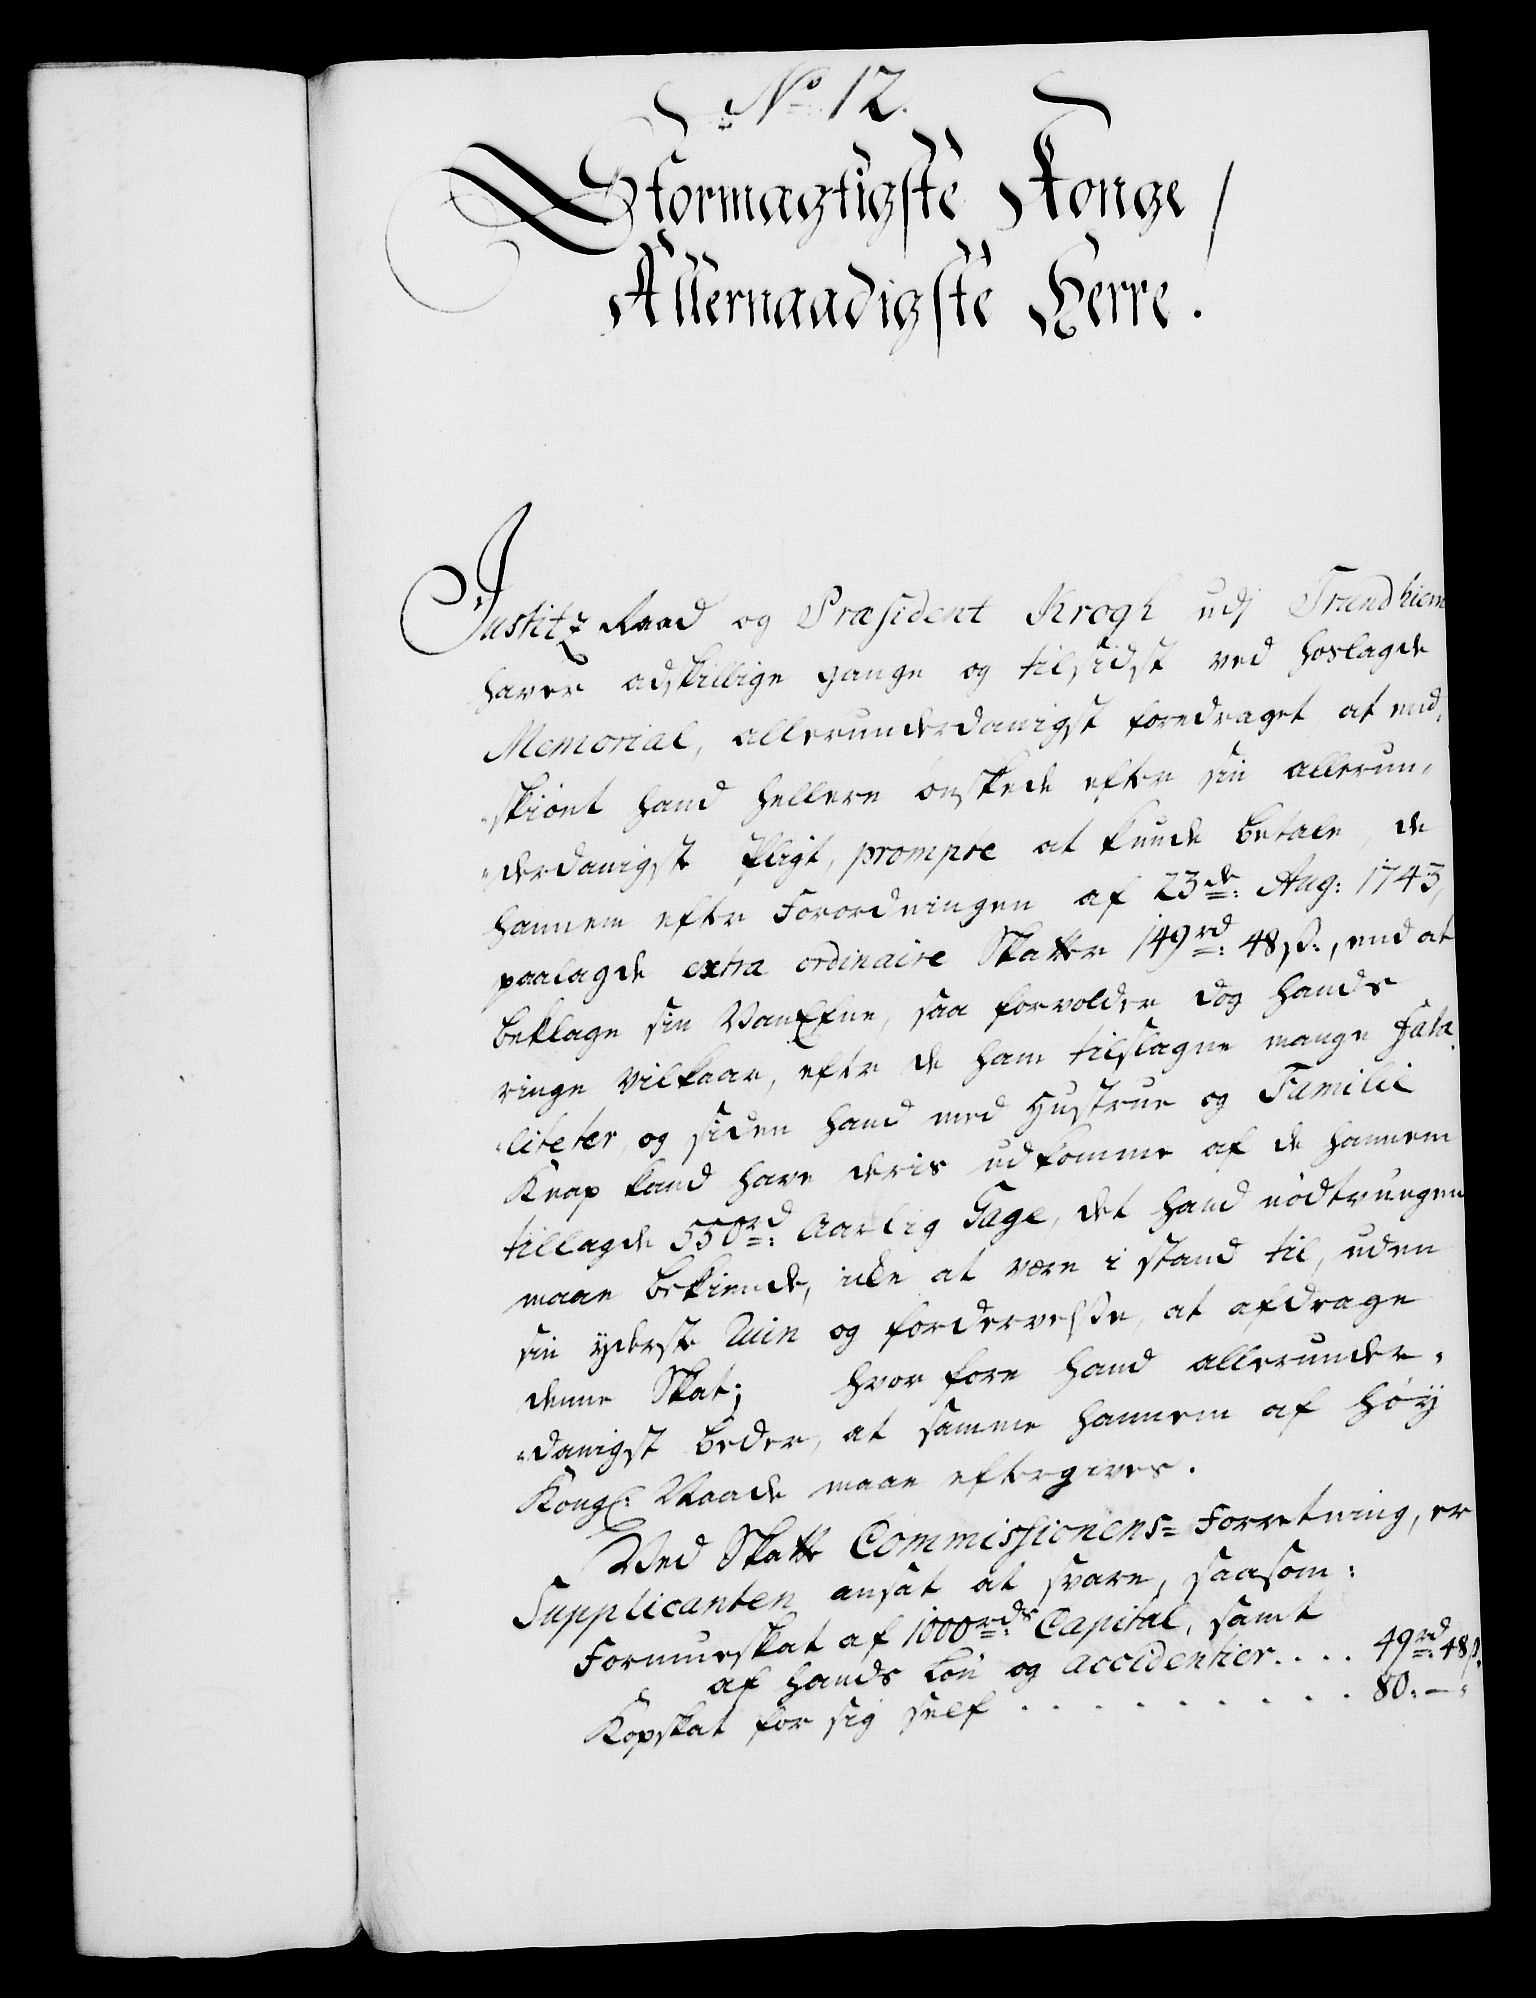 No. 12.
Stormagtigste Konge /
Allernaadigste Herre.
Justitz Raad og Præsident Krogh udj Trundhiem
haver adskillige gange og tilsidst ved hoslagde
Memorial, allerunderdanigst foredraget, at end-
-skiönt hand hellere önskede efter sin allerun-
-derdanigst Pligt, prompte at kunde betale, de
hannem efter Forordningen af 23de: Aug: 1743,
paalagde extra ordinaire Skatter 149rd: 48s:, end at
beklage sin VanEfne, saa forvolder dog hands
ringe Vilkaar, efter de ham tilslagne mange Fata-
-liteter, og siden hand med Hustrue og Familie
Knap kand have deris udkomme af de hannem
tillagde 550rd: Aarlig Gage, det hand nödtvungen
maae bekiende, icke at være i stand til, uden
sin yderste Ruin og fordervelsse, at afdrage
denne Skat; hvor fore hand allerunder-
-danigst beder, at samme hannem af höy
Kongl: Naade maae eftergives.
Ved Skatte Commissionens= Forretning, er
Supplicanten ansat at svare, saasom:
Formueskat af 1000rds: Capital, samt
af hands Lön og accidentier.... 49rd: 48s.
Kopskat for sig self . . . . . . . . . . 80: —: